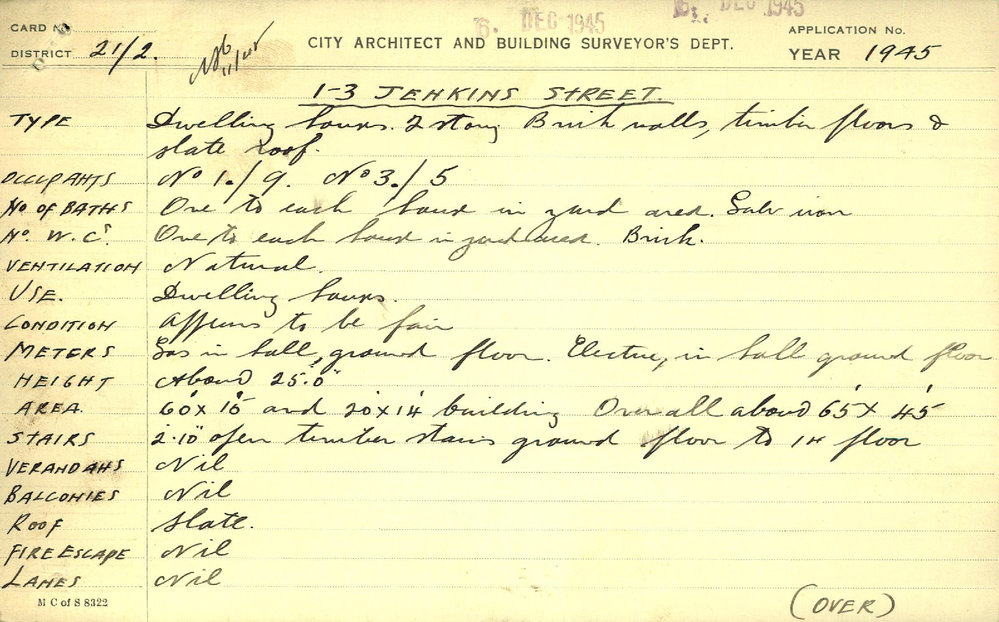 6. DEC 1945
6. DEC 1945
CARD No
DISTRICT 21/2.
CITY ARCHITECT AND BUILDING SURVEYOR'S DEPT.
APPLICATION No.
YEAR 1945
1-3 JENKINS STREET.
TYPE Dwelling houses. 2 story Brick walls, timber floors &
slate roof.
OCCUPANTS No 1./9. No 3./5
No OF BATHS One to each house in yard area. Galv iron
No. W.Cs. One to each house in yard area. Brick.
VENTILATION Natural.
USE. Dwelling houses.
CONDITION Appears to be fair
METERS Gas in hall, ground floor. Electric, in hall ground floor
HEIGHT About 25'.0"
AREA. 60' x 16' and 20' x 14' building Over all about 65' x 45'
STAIRS 2'.10" open timber stairs ground floor to 1st floor
VERANDAHS Nil
BALCONIES Nil
ROOF Slate.
FIRE ESCAPE Nil
LANES Nil
M C of S 8322
(OVER)